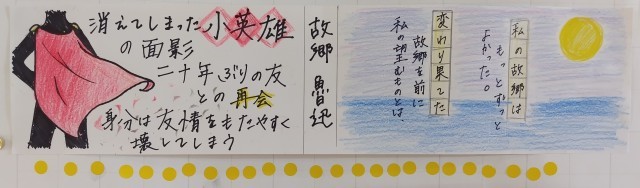 消えてしまった小英雄
の面影
二十年ぶりの友
との再会
身分は友情をもたやすく
壊してしまう
故郷 魯迅
私の故郷は
もっとずっと
よかった。
変わり果てた
故郷を前に
私の望むものとは、